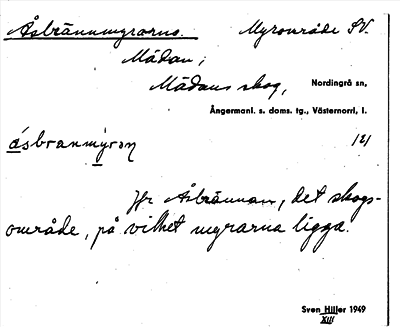 Åsbrännmyrarna. Myrområde SV.
Mädan;
Mädans skog, Nordingrå sn,
Ångermanl. s. doms. tg., Västernorrl. l.
ásbranmyrǝn 121
Jfr Åsbrännan, det skogs-
område, på vilket myrarna ligga.
Sven Hiller 1949
XIII